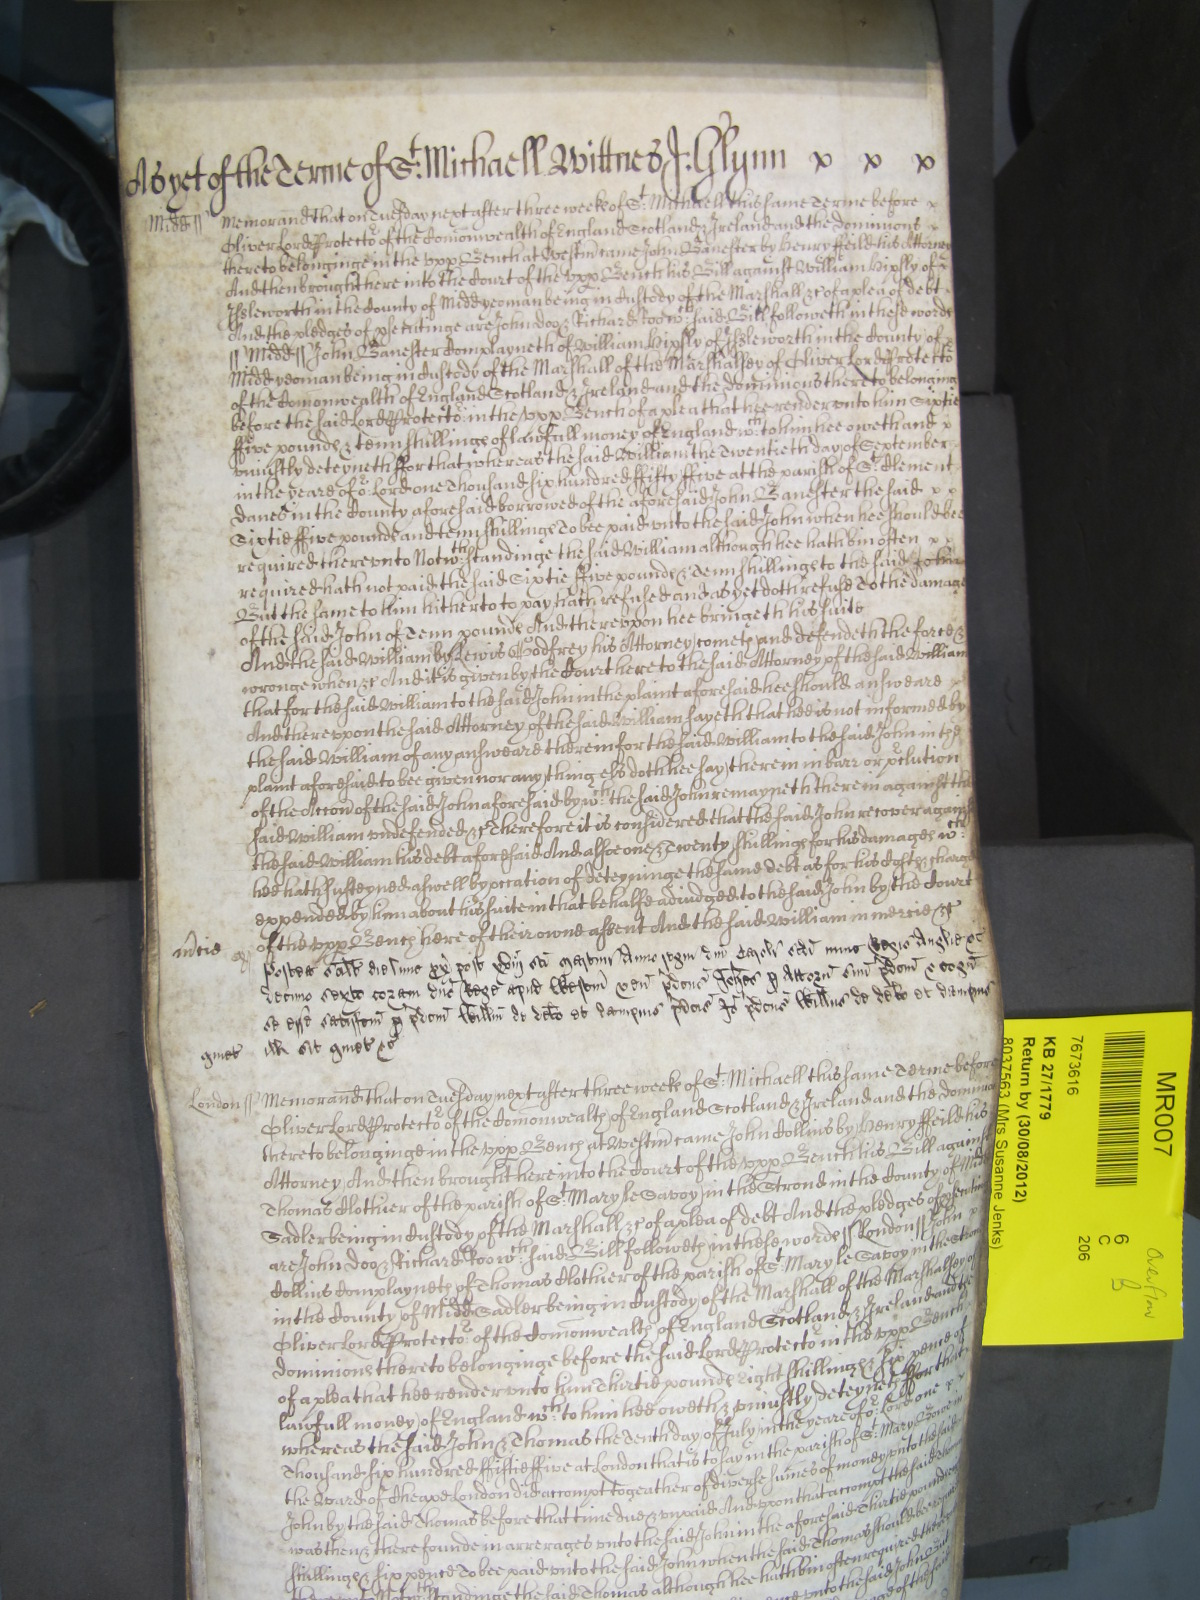 As yet of the Terme of St: Michaell Wittnes J: Glynn x x x
Midd // Memorand that on Tuesday next after three weekes of St Michaell this same Terme before x
Oliver Lord Protector of the Comonwealth of England Scotland & Ireland and the Dominions x
thereto belonginge in the upp Bench at Westm came John Banester by Henry ffeild his Attorney
And then brought here into the Court of the upp Bench his Bill against William Hipsly of x
Isleworth in the County of Midd yeoman being in Custody of the Marshall &c of a plea of debt
And the pledges of psecutinge are John Doo & Richard Roo wch said Bill followeth in these words
// Midd // John Banester Complayneth of William Hipsly of Isleworth in the County of
Midd yeoman being in Custody of the Marshall of the Marshalsey of Oliver Lord Protector
of the Comonwealth of England Scotland & Ireland and the Dominions thereto belonging
before the said Lord Protector in the upp Bench of a plea that hee render unto him Sixtie
ffive pounds & tenn shillings of lawfull money of England wch to him hee oweth and x
uniustly deteyneth ffor that whereas the said William the Twentieth day of September
in the yeare of or Lord one Thousand six hundred ffifty ffive at the parish of St Clement
Danes in the County aforesaid borrowed of the aforesaid John Banester the said x x
Sixtie ffive pounds and tenn shillings To bee paid unto the said John when hee should bee
required thereunto Notwthstandinge the said William although hee hath bin often x x
required hath not paid the said Sixtie ffive pounds & Tenn shillings to the said John
But the same to him hitherto to pay hath refused and as yet doth refuse To the damage
of the said John of Tenn pounds And thereupon hee bringeth his suite
And the said William by Lewis Godfrey his Attorney cometh and defendeth the force &
wronge when &c And it is given by the Court here to the said Attorney of the said William
that for the said William to the said John in the plaint aforesaid hee should answeare
And thereupon the said Attorney of the said William sayeth that hee is not informed by
the said William of any answeare therein for the said William to the said John in the
plaint aforesaid to bee given nor any thing els doth hee say therein in barr or pclution
of the Accon of the said John aforesaid by wch the said John remayneth therein against the
said William undefended &c Therefore it is considered that the said John recover against
the said William his debt aforesaid And alsoe one & Twenty shillings for his damages wch
hee hath susteyned aswell by occation of deteyninge the same debt as for his Costs & charges
expended by him about his suite in that behalfe adiudged to the said John by the Court
mcie of the upp Bench here of their owne assent And the said William in mercie &c
London // Memorand that on Tuesday next after three weekes of St Michaell this same Terme before
Oliver Lord Protector of the Comonwealth of England Scotland & Ireland and the Dominions
thereto belonginge in the upp Bench at Westm came John Collins by Henry ffeild his
Attorney And then brought here into the Court of the upp Bench his Bill against
Thomas Clothier of the parish of St Mary le Savoy in the Strond in the County of Midd
Sadler being in Custody of the Marshall &c of a plea of debt And the pledges of psecutinge
are John Doo & Richard Roo wch said Bill followeth in these words // London // John x
Collins Complayneth of Thomas Clothier of the parish of St Mary le Savoy in the Strond
in the County of Midd Sadler being in Custody of the Marshall of the Marshalsey of
Oliver Lord Protector of the Comonwealth of England Scotland & Ireland and the
dominions thereto belonginge before the said Lord Protector in the upp Bench
of a plea that hee render unto him Thirtie pounds Eight shillings & six pence of
lawfull money of England wch to him hee oweth & uniustly deteyneth ffor that
whereas the said John & Thomas the Tenth day of July in the yeare of or Lord one x x
Thousand six hundred ffiftie ffive at London that is to say in the parish of St Mary Bowe in
the Ward of Cheape London did accompt togeather of diverse sumes of money unto the said
John by the said Thomas before that time due & unpaid And upon that accompt the said Thomas
was then & there founde in arrerages unto the said John in the aforesaid Thirtie pounds
shillings & six pence To bee paid unto the said John when the said Thomas should bee
the said Thomas although hee hath bin often required
MR007
7673616
KB 27/1779
Return by (30/08/2012)
8037563 (Mrs Susanne Jenks)
6
C
206
Overflow
B